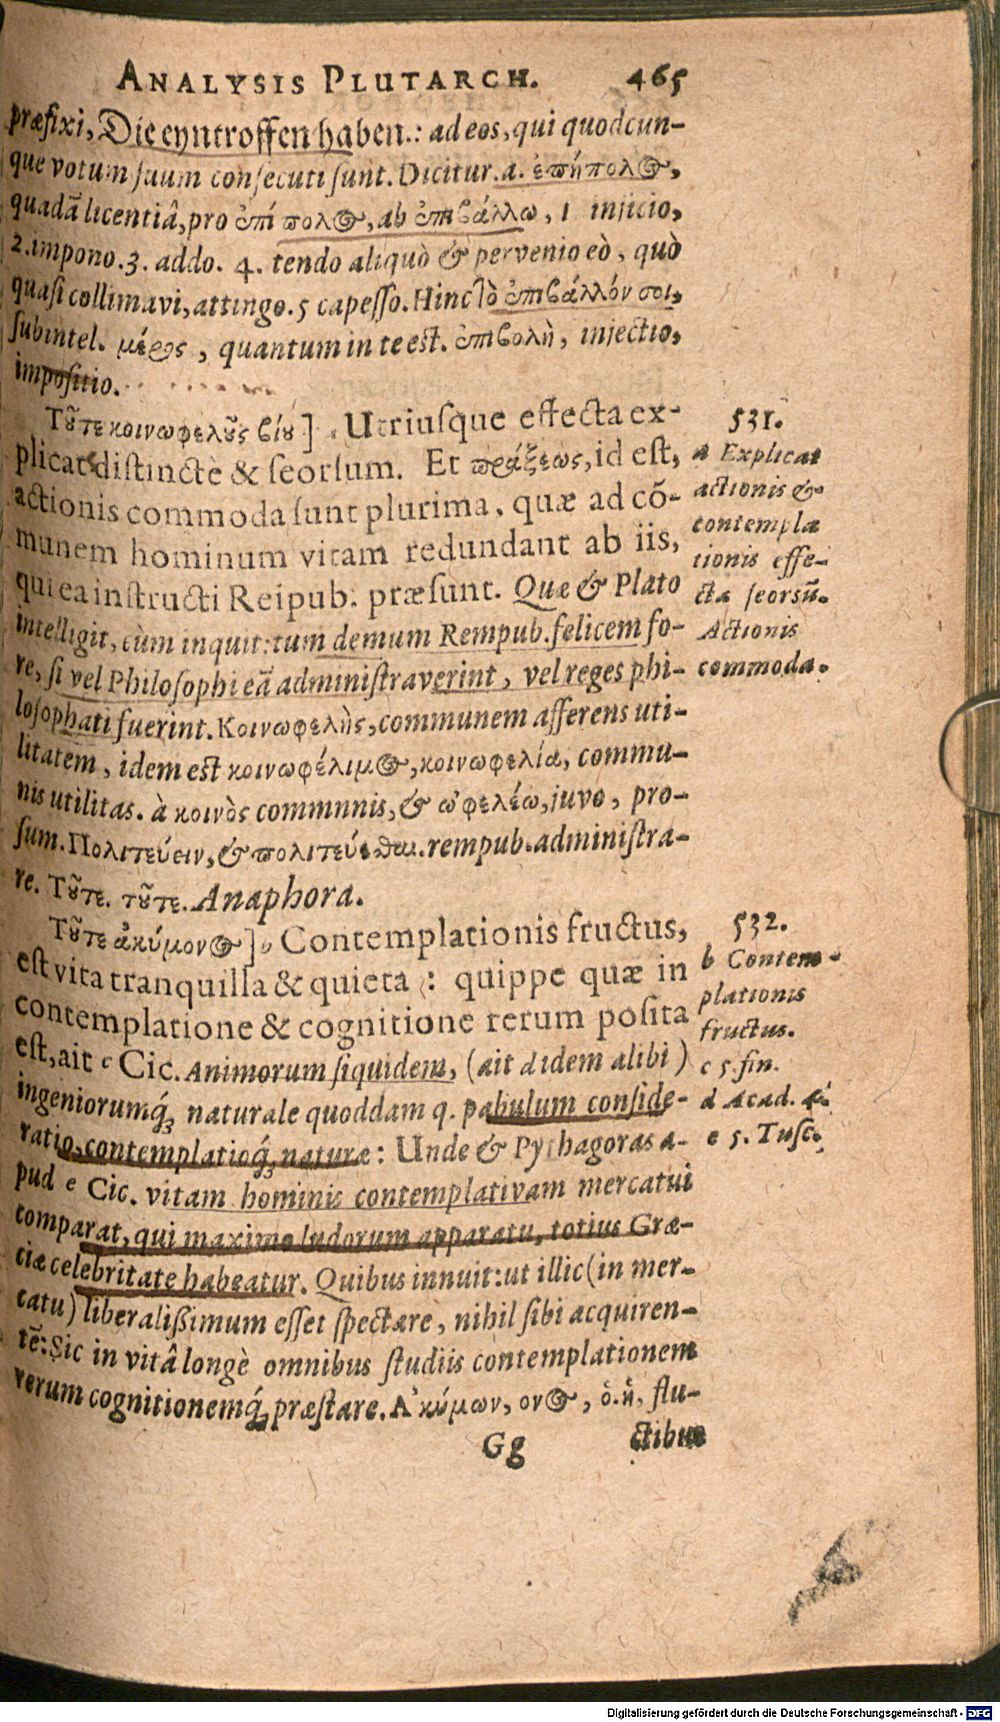 ANALYSIS PLUTARCH. 465
præfixi, Die eyntroffen haben.: ad eos, qui quodcun-
que votum suum consecuti sunt. Dicitur. a. ἐπήπολος,
quadā licentiâ, pro ἐπί πολος, ab ἐπιβάλλω, 1 injicio,
2. impono. 3. addo. 4. tendo aliquò & pervenio eò, quò
quasi collimavi, attingo. 5 capesso. Hinc τὸ ἐπιβάλλόν σοι,
subintel. μέρος, quantum in te est. ἐπιβολὴ, injectio,
impositio.
Τοῦτε κοινωφελοῦς βίου]. Utriusque effecta ex-
plicat distinctè & seorsum. Et πράξεως, id est,
actionis commoda sunt plurima, quæ ad cō-
munem hominum vitam redundant ab iis,
qui ea instructi Reipub. præsunt. Quæ & Plato
intelligit, cùm inquit: tum demum Rempub. felicem fo-
re, si vel Philosophi eā administraverint, vel reges phi-
losophati fuerint. Κοινωφελὴς, communem afferens uti-
litatem, idem est κοινωφέλιμος, κοινωφελία, commu-
nis utilitas. à κοινὸς commnnis, & ὠφελέω, juvo, pro-
sum. Πολιτεύειν, & πολιτεύεσθαι. rempub. administra-
re. Τοῦτε. τοῦτε. Anaphora.
531.
a Explicat
actionis &
contempla
tionis effe-
cta seorsū.
Actionis
commoda.
Τοῦτε ἀκύμονος] b Contemplationis fructus,
est vita tranquilla & quieta : quippe quæ in
contemplatione & cognitione rerum posita
est, ait c Cic. Animorum siquidem, (ait d idem alibi)
ingeniorumq́; naturale quoddam q. pabulum conside-
ratio, contemplatioq́; naturæ: Unde & Pythagoras a-
pud e Cic. vitam hominis contemplativam mercatui
comparat, qui maximo ludorum apparatu, totius Græ-
ciæ celebritate habeatur. Quibus innuit: ut illic (in mer-
catu) liberalißimum esset spectare, nihil sibi acquiren-
tē: Sic in vitâ longè omnibus studiis contemplationem
rerum cognitionemq́; præstare. Ἀκύμων, ονος, ὁ. ἡ. flu-
532.
b Contem-
plationis
fructus.
c 5. fin.
d Acad. 4.
e 5. Tusc.
Gg ctibus
Digitalisierung gefördert durch die Deutsche Forschungsgemeinschaft - DFG